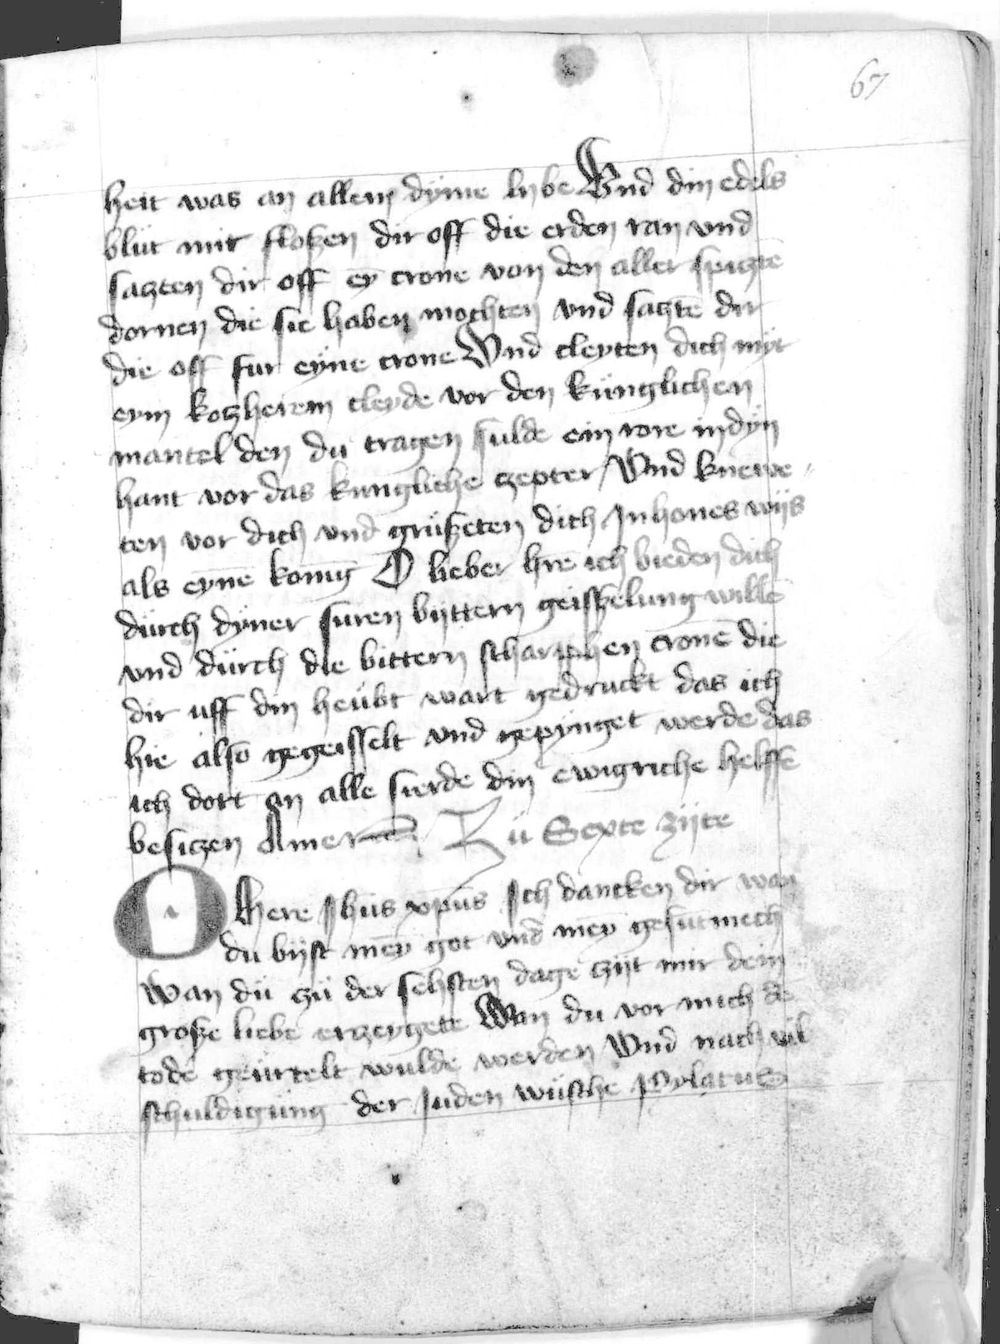 67
heit was an allem dyme lybe Vnd din edels
blüt mit flotzen dir off die erden ran vnd
saczten dir off ey crone von den aller spiczte
dornen die sie haben mochten vnd saczte dir
die off fur eyne crone Vnd cleyten dich myt
eym kotzherem cleyde vor den künglichen
mantel den du tragen sulde ein rore in dyn
hant vor das kungliche zepter Vnd knewe
ten vor dich vnd grüßeten dich In hones wijs
als eyne konig O lieber hre ich bieden dich
durch dyner suren bijttern geischelung wille
vnd dürch die bittern scharpphen crone die
dir uff din heubt wart gedruckt das ich
hie also gegeisselt vnd gepynget werde das
ich dort an alle sierde din ewigriche helffe
besiczen Amen Zü Sexte zijte
O here Jhus xpus Ich dancken dir wan
du bijst mey got vnd mey gesutmech
Wan dü zü der sehsten dage zijt mir dein
große liebe erzeygete Wan du vor mich de
tode geurtelt wulde werden Vnd nach vil
schuldigüng der Juden wüsche Pylatus